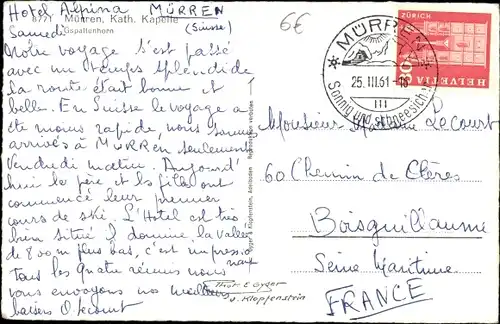 Hotel Alpina MÜRREN
Mürren, Kath. Kapelle
(Suisse)
Samedi
Gspaltenhorn
Notre voyage s'est passé
avec un temps splendide
la route était bonne et
belle. En Suisse le voyage a
été moins rapide, nous sommes
arrivés à MÜRREN seulement
Vendredi matin. Aujourd'
hui le père et les fils ont
commencé leur premier
cours de ski. L'Hotel est très
bien situé il domine la vallée
de 800 m plus bas, c'est impression
nant
Tous les quatre réunis nous
vous envoyons nos meilleurs
baisers
6€
MÜRREN
25. III. 61-18
III
Sonnig und schneesicher
ZÜRICH
HELVETIA
Monsieur Madame Lecourt
60 Chemin de Clères
Boisguillaume
Seine Maritime
FRANCE
Phot. E. Gyger
u. Klopfenstein
Gyger & Klopfenstein, Adelboden
Reproduktion verboten